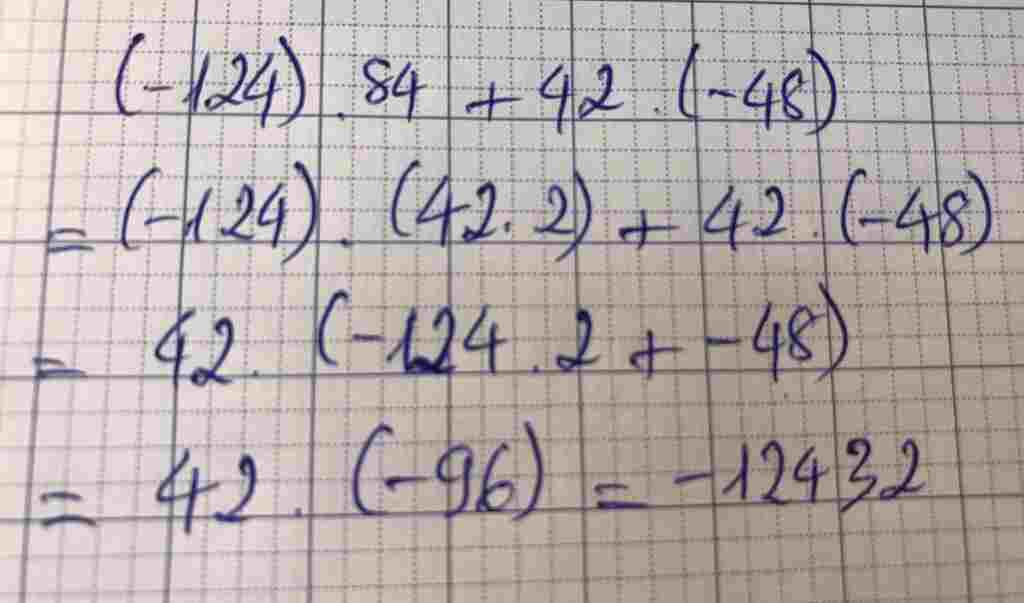 (-124) . 84 + 42 . (-48)
= (-124) . (42. 2) + 42 . (-48)
= 42 . (-124 . 2 + -48)
= 42 . (-96) = -12432